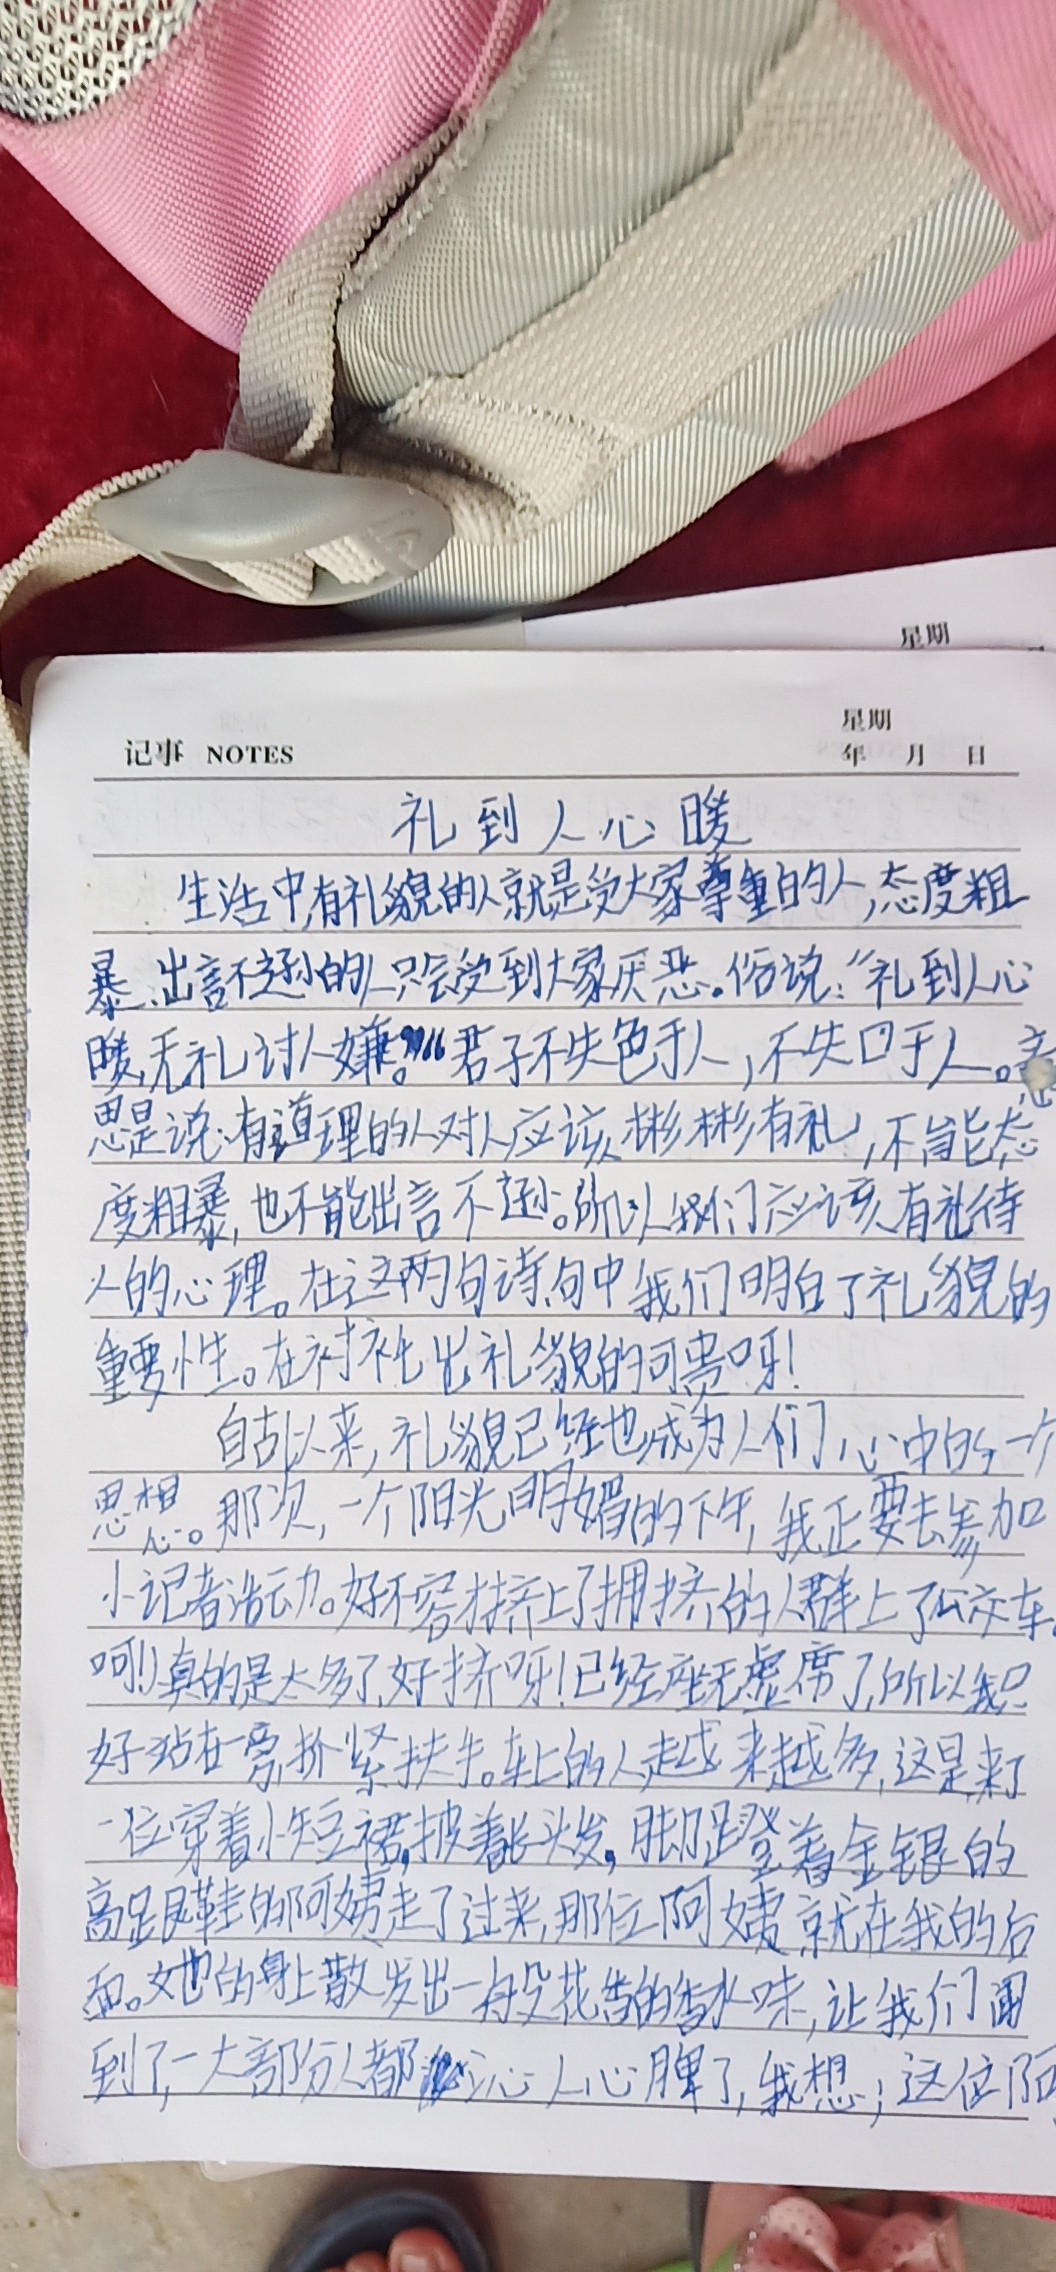 星期
记事 NOTES
星期
年 月 日
礼到人心暖
生活中,有礼貌的人就是受大家尊重的人,态度粗
暴、出言不逊的人只会受到大家厌恶。俗说:“礼到人心
暖,无礼讨人嫌。”“君子不失色于人,不失口于人。意
思是说:有道理的人对人应该彬彬有礼,不能态
度粗暴,也不能出言不逊。所以我们应该有礼待
人的心理。在这两句诗句中我们明白了礼貌的
重要性。在衬托出礼貌的可贵呀!
自古以来,礼貌已经也成为人们心中的一个
思想。那次,一个阳光明媚的下午,我正要去参加
小记者活动。好不容挤上了拥挤的人群上了公交车。
呵!真的是太多了,好挤呀!已经座无虚席了,所以我只
好站在一旁,扒紧扶手。车上的人越来越多,这是来了
一位穿着小短裙,披着长头发,脚蹬着金银的
高跟鞋的阿姨走了过来,那位阿姨就在我的后
面。她的身上散发出一股花香的香水味,让我们闻
到了,一大部分人都沁人心脾了,我想;这位阿